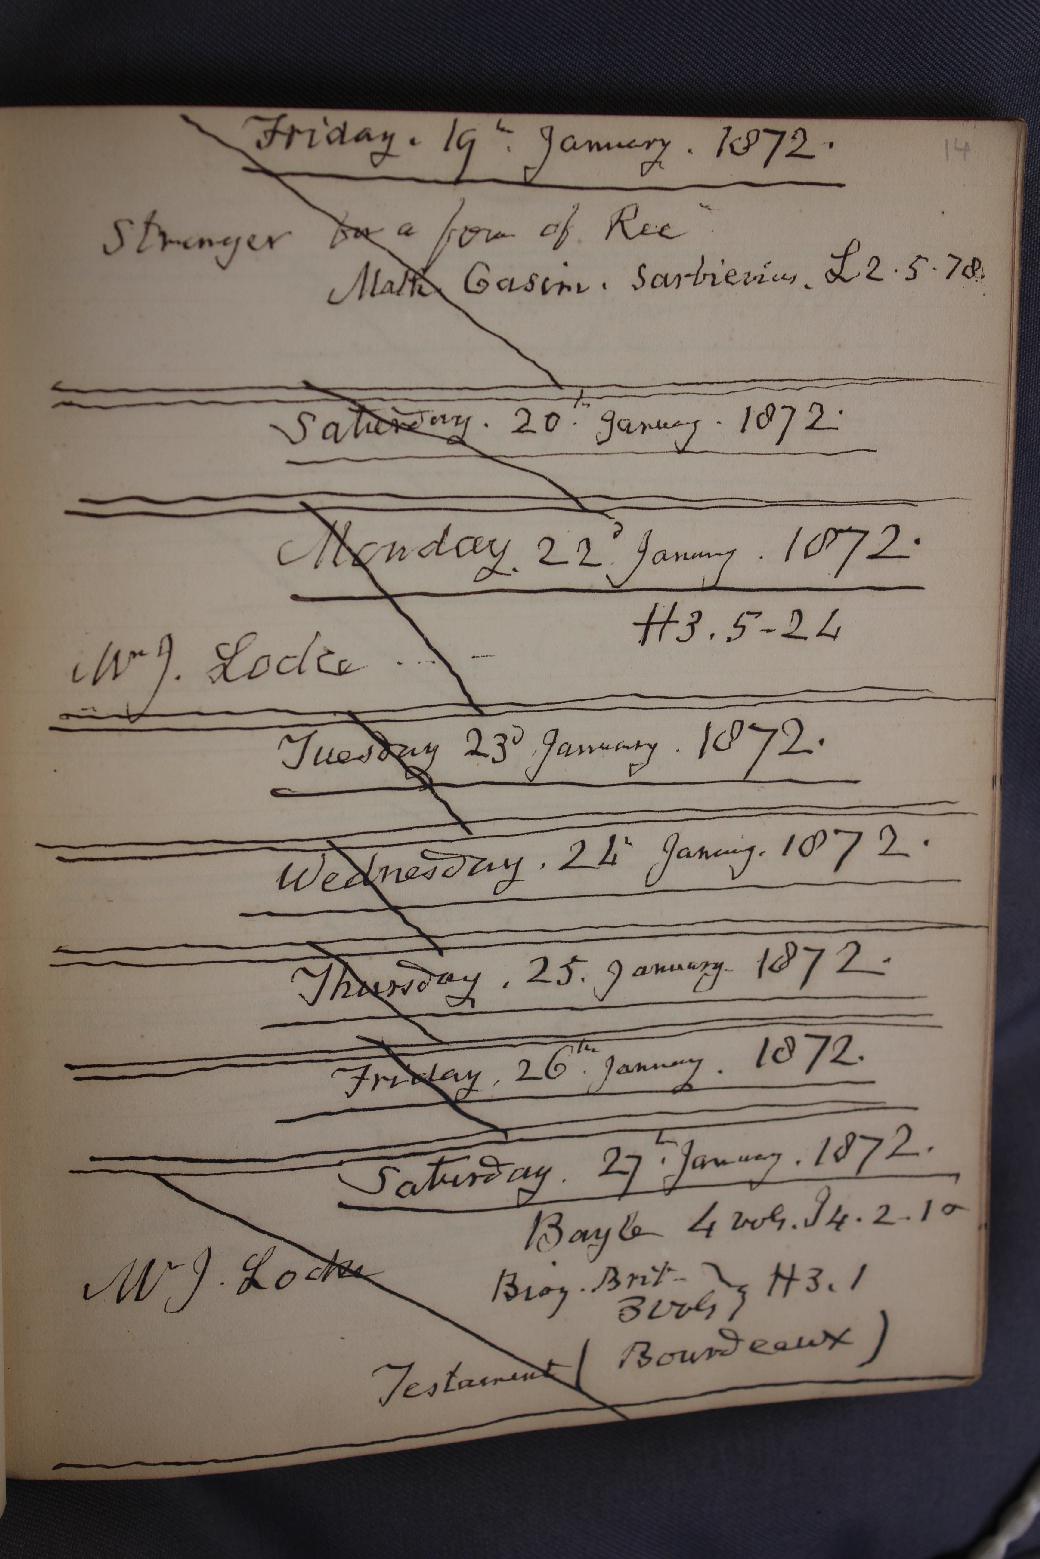 14
Friday. 19th. January. 1872.
Stranger for a form of Rec
Math. Casim. Sarbievius. L2.5.78.
Saturday. 20th. January. 1872.
Monday. 22d. January. 1872.
H3.5-24
Mr J. Locke
Tuesday 23d January. 1872.
Wednesday. 24th January. 1872.
Thursday. 25. January 1872.
Friday. 26th. January. 1872.
Saturday. 27th. January. 1872.
Bayle 4 vols. J4.2.10
Mr J. Locke
Biog. Brit- } H3.1
3 vols
Testament ( Bourdeaux )